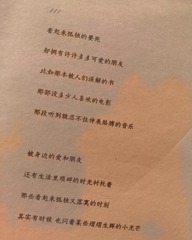 ///
看起来孤独的要死
却拥有许许多多可爱的朋友
比如那本被人们误解的书
那部没多少人喜欢的电影
那段听到就忍不住伸展胳膊的音乐
被身边的爱和朋友
还有生活里琐碎的时光衬托着
那些看起来孤独又落寞的时刻
其实有时候 也闪着某些熠熠生辉的小光芒